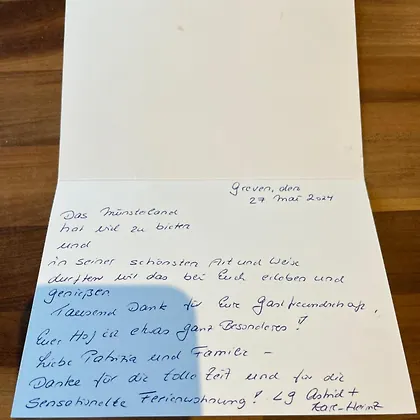 Greven, den
27 Mai 2024
Das Münsterland
hat viel zu bieten
und
in seiner schönsten Art und Weise
durften wir das bei Euch erleben und
genießen
Tausend Dank für Eure Gastfreundschaft,
Euer Hof ist etwas ganz Besonderes!
Liebe Patrizia und Familie –
Danke für die tolle Zeit und für die
Sensationelle Ferienwohnung! LG Astrid +
Karl-Heinz